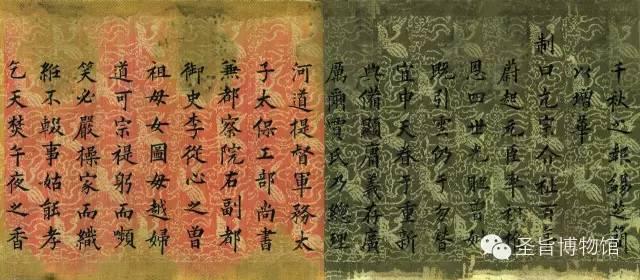 千秋之錫芝
以增華
制曰亢宗介祉百
蔚起元臣聿
恩四世光貽
既引雲仍于勿替
宜申天眷于重新
典備顯庸義存廣
厲爾賈氏乃總理
河道提督軍務太
子太保工部尚書
兼都察院右副都
御史李從心之曾
祖母女圖毋越婦
道可宗褆躬而嚬
笑必嚴操家而織
絍不輟事姑能孝
乞天焚午夜之香
圣旨博物馆